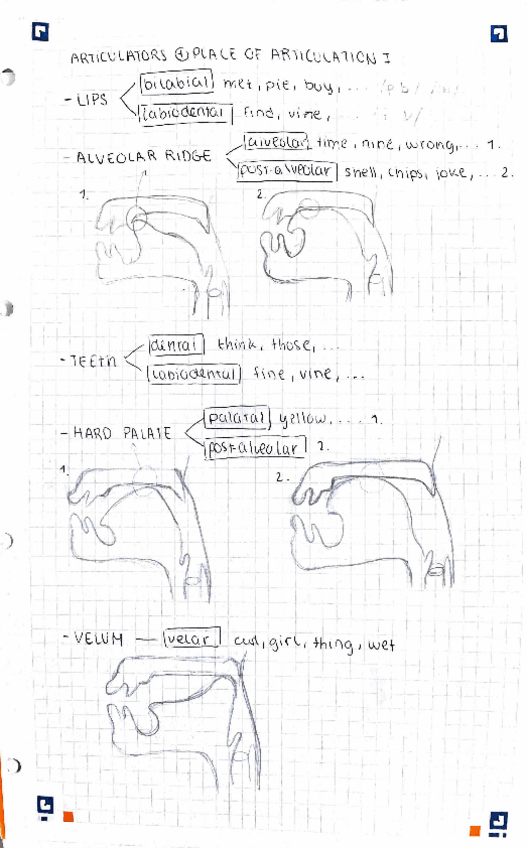 ARTICULATORS ④ PLACE OF ARTICULATION I
- LIPS
bilabial met, pie, buy, ...
labiodental find, vine, ...
- ALVEOLAR RIDGE
alveolar time, nine, wrong, ... 1.
post-alveolar shell, chips, joke, ... 2.
1.
2.
- TEETH
dental think, those, ...
labiodental fine, vine, ...
- HARD PALATE
palatal yellow, .... 1.
post-alveolar 2.
1.
2.
- VELUM — velar curl, girl, thing, wet